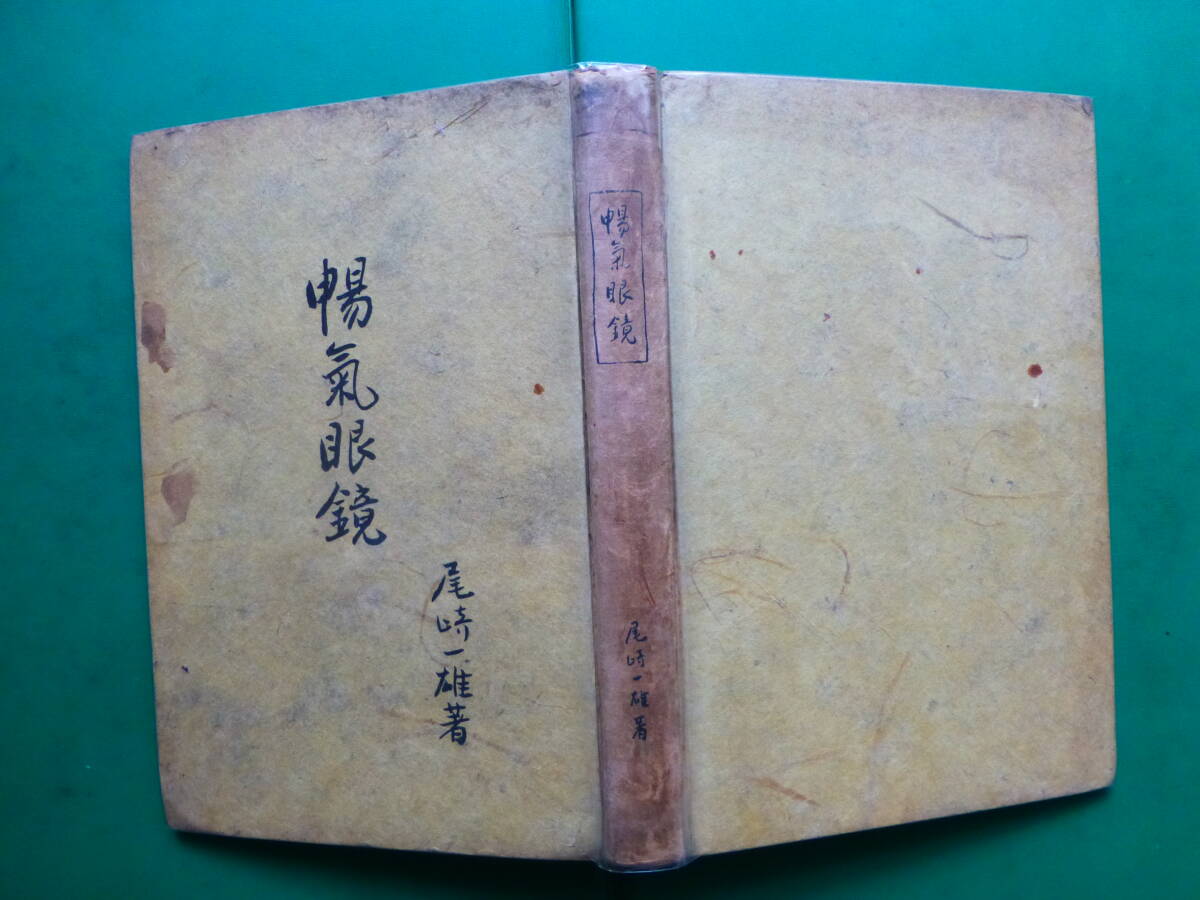 暢氣眼鏡
尾崎一雄著
暢氣眼鏡
尾崎一雄著